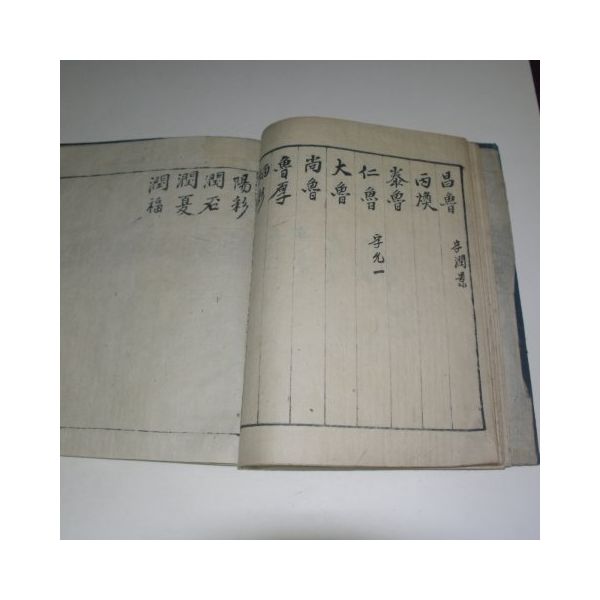 昌魯
字潤景
丙煥
泰魯
仁魯 字允一
大魯
尚魯
魯厚
陽彩
潤石
潤夏
潤福